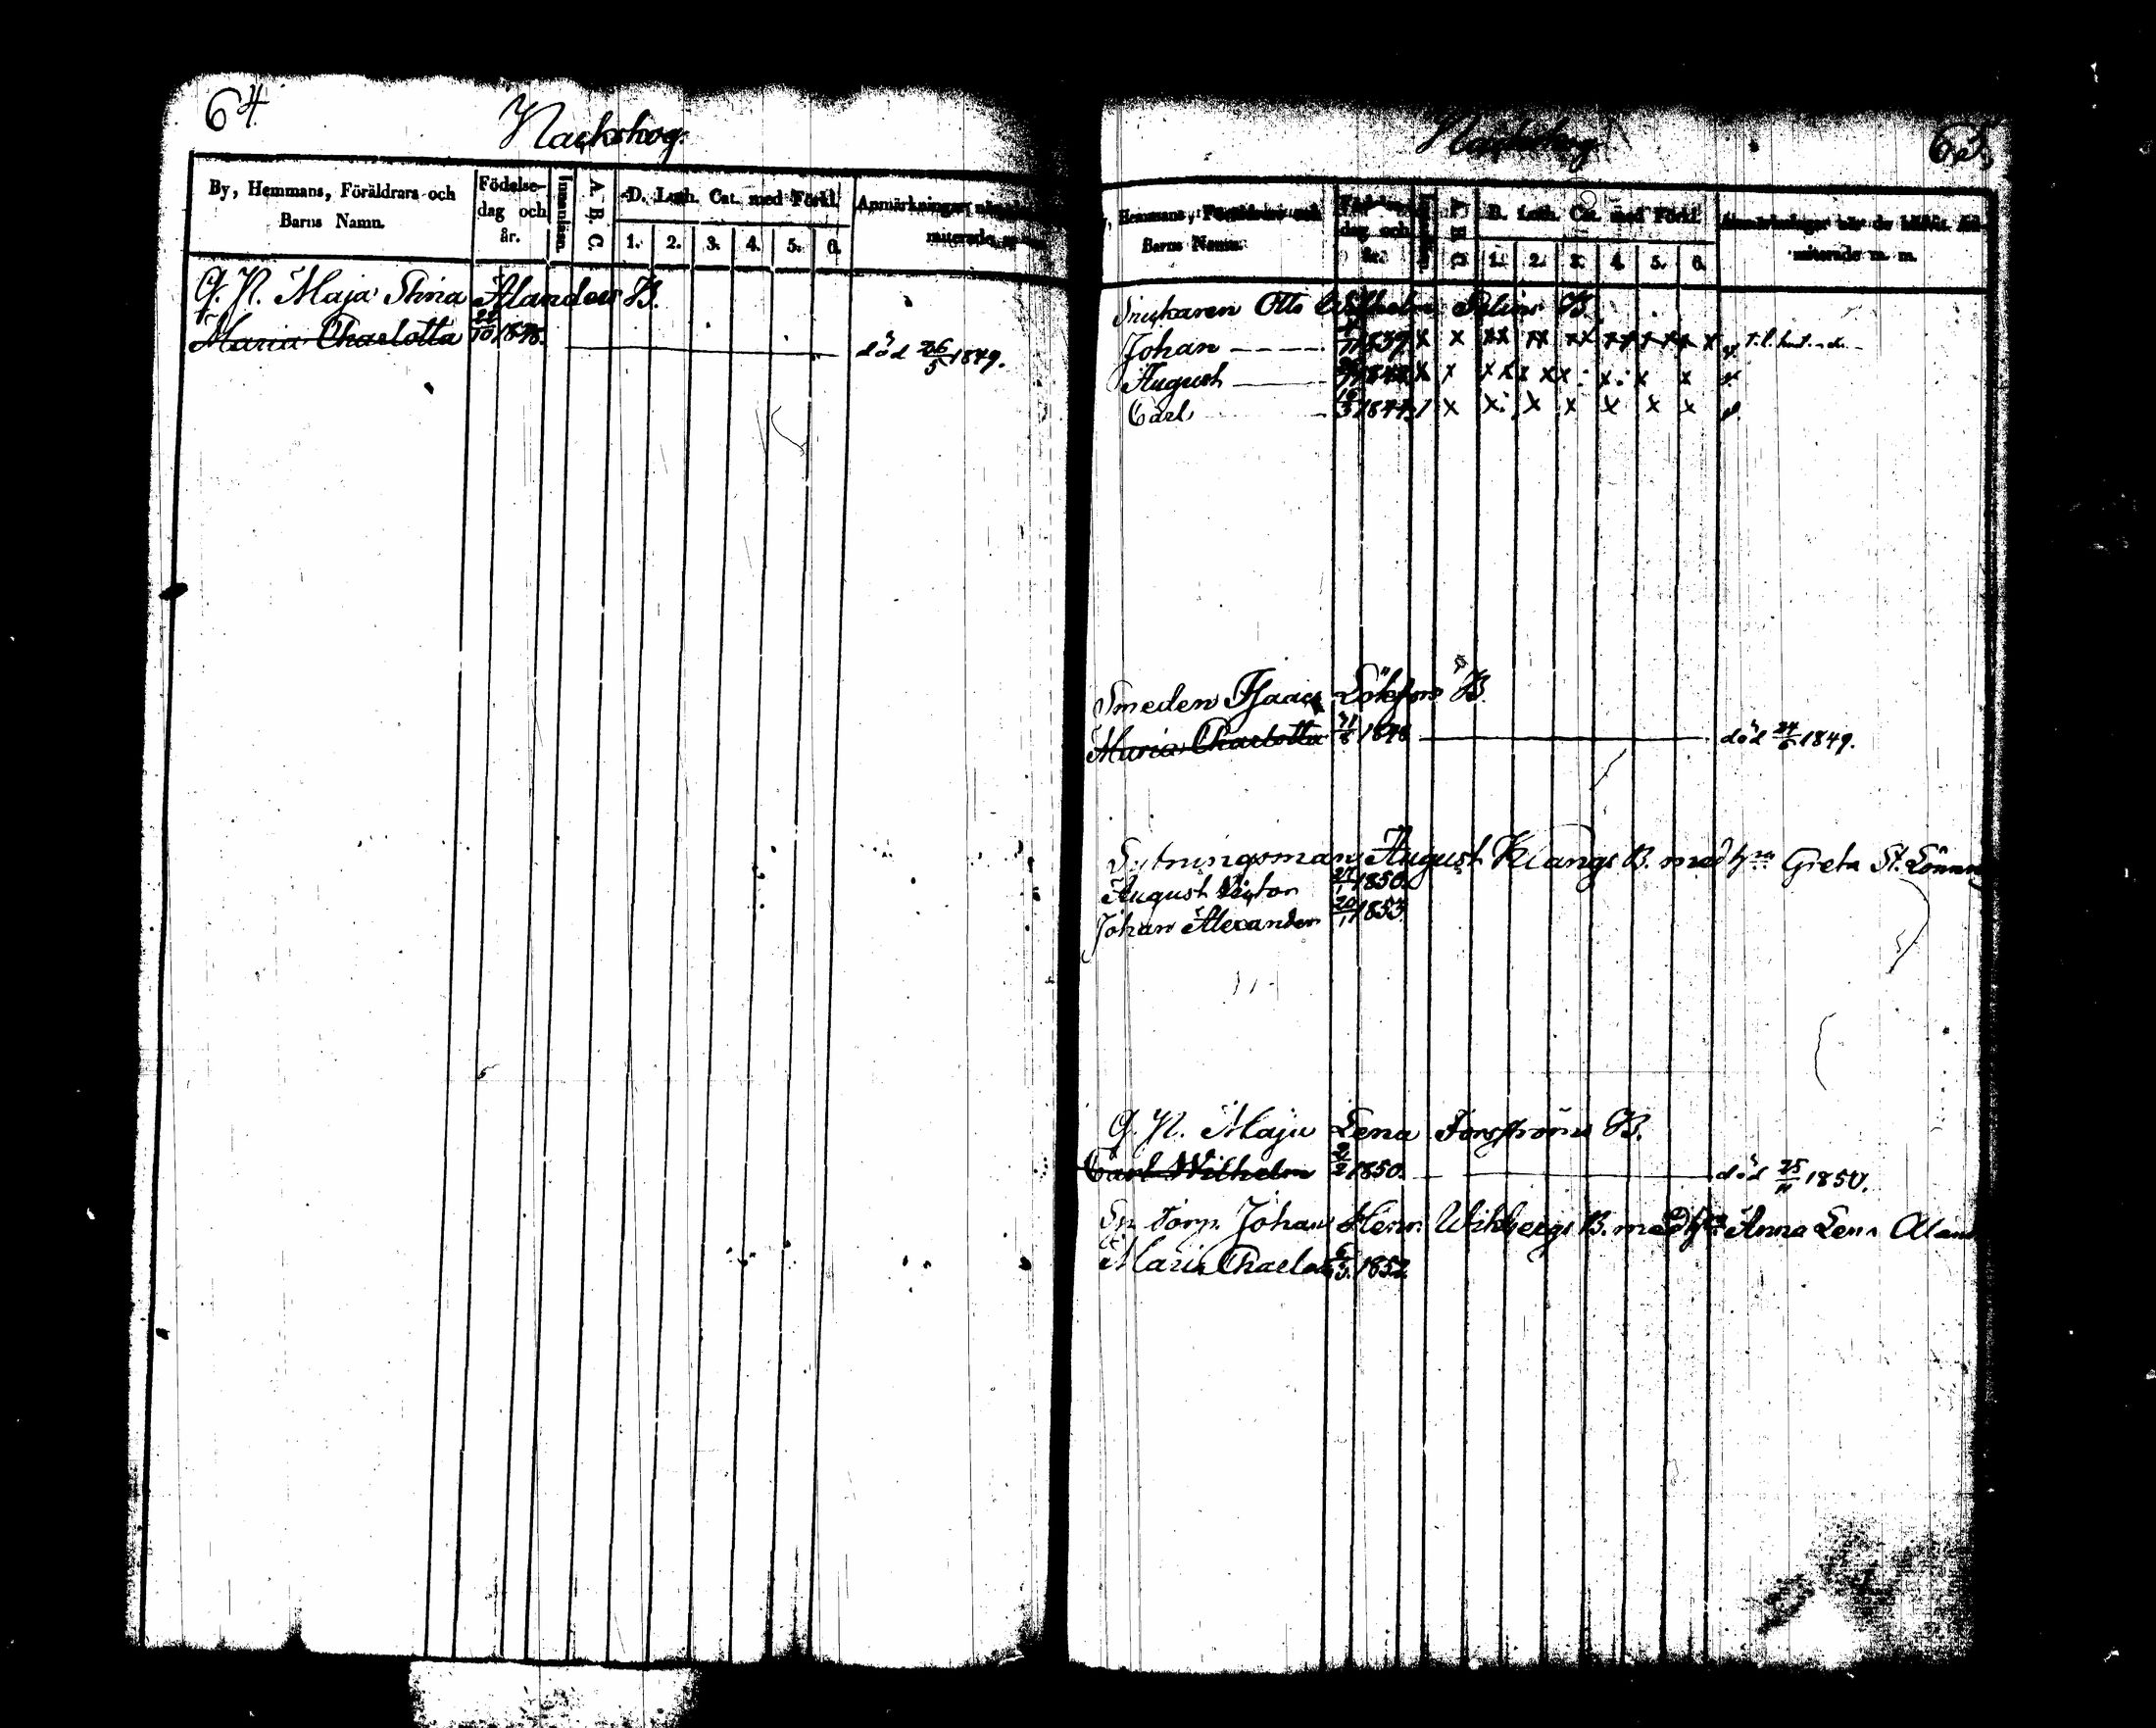 64
Näckskog.
By, Hemmans, Föräldrars och Barns Namn.
Födelse-dag och år.
Innanläsn.
A B C
D. Luth. Cat. med Förkl.
1. 2. 3. 4. 5. 6.
Anmärkningar
miterade
Q. P. Maja Stina Alanders B.
Maria Charlotta 22/10 1848. död 26/5 1849.
Näckskog
65.
Hemmans, Föräldrars och Barns Namn.
dag och år.
A B C
D. Luth. Cat. med Förkl.
1. 2. 3. 4. 5. 6.
Anmärkningar när de blifvit
miterade m. m.
Snickaren Otto Wilhelm B.
Johan 1839 x x xx xx xx
August x x
Carl 1844 x x x x x x x
Smeden Isaac Löfgrens B.
Maria Charlotta 1848 död 24/6 1849.
Sytningsman August Klangs B. med h Greta St.
August Victor 27/1 1850.
Johan Alexander 20/1 1853.
Q. P. Maja Lena Forsströms B.
Carl Wilhelm 2/2 1850. död 25/11 1850.
Sp. torp. Johan Henr. Wikbergs B. med Anna Lena
Maria 6/3 1852